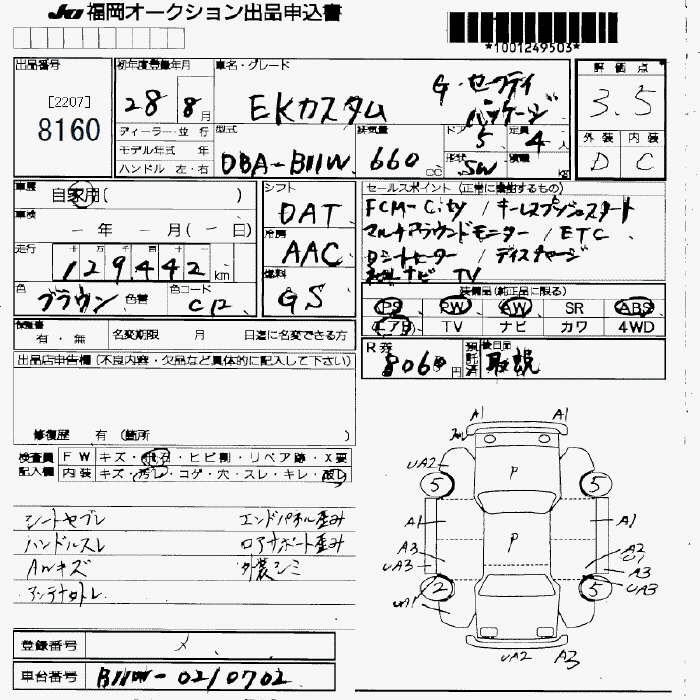 JU 福岡オークション出品申込書
*1001249503*
出品番号
[2207]
8160
初年度登録年月
28年 8月
車名・グレード
G・セーフティ
パッケージ
EKカスタム
評価点
3.5
外装 内装
D C
ディーラー・並行
モデル年式 年
ハンドル 左・右
型式
DBA-B11W
排気量
660 CC
ドア
5
形状
SW
定員
4人
積載
kg
車歴
自家用( )
車検
ー年 ー月(ー日)
走行
十万千百十一
129,442 km
色
ブラウン 色替
色コード
C12
シフト
DAT
冷房
AAC
燃料
GS
セールスポイント(正常に機能するもの)
FCM-City / キーレスプッシュスタート
マルチアラウンドモニター / ETC
Dシートヒーター / ディスチャージ
ナビ TV
装備品(純正品に限る)
PS PW AW SR ABS
エアB TV ナビ カワ 4WD
有・無 名変期限 月 日迄に名変できる方
R券
8060円
預託済
後日品
取説
出品店申告欄(不良内容・欠品など具体的に記入して下さい)
修復歴 有(箇所 )
検査員
記入欄
FW キズ・飛石・ヒビ割・リペア跡・X要
内装 キズ・汚レ・コゲ・穴・スレ・キレ・
シートヤブレ エンドパネル歪み
ハンドルスレ ロアサポート歪み
AWキズ 外装シミ
アンテナトレ
登録番号
メ
車台番号 B11W-0210702
A1 A1
UA2
5 P 5
A1 A1
A3 P A2
UA3 U1
A3
2 5 UA3
UA1
UA2 A3